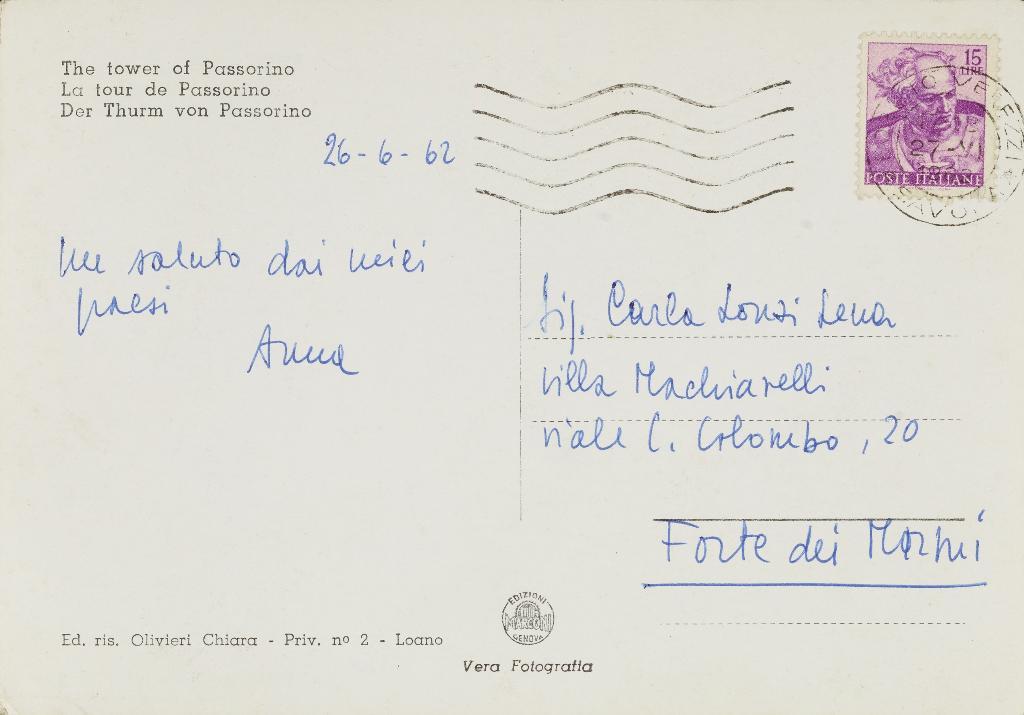 The tower of Passorino
La tour de Passorino
Der Thurm von Passorino
26-6-62
un saluto dai miei
paesi
Anna
15
LIRE
POSTE ITALIANE
27 VI
SAVONA
Sig. Carla Lonzi Lena
villa Machiavelli
viale C. Colombo, 20
Forte dei Marmi
Ed. ris. Olivieri Chiara - Priv. nº 2 - Loano
EDIZIONI
MARCONI
GENOVA
Vera Fotografia